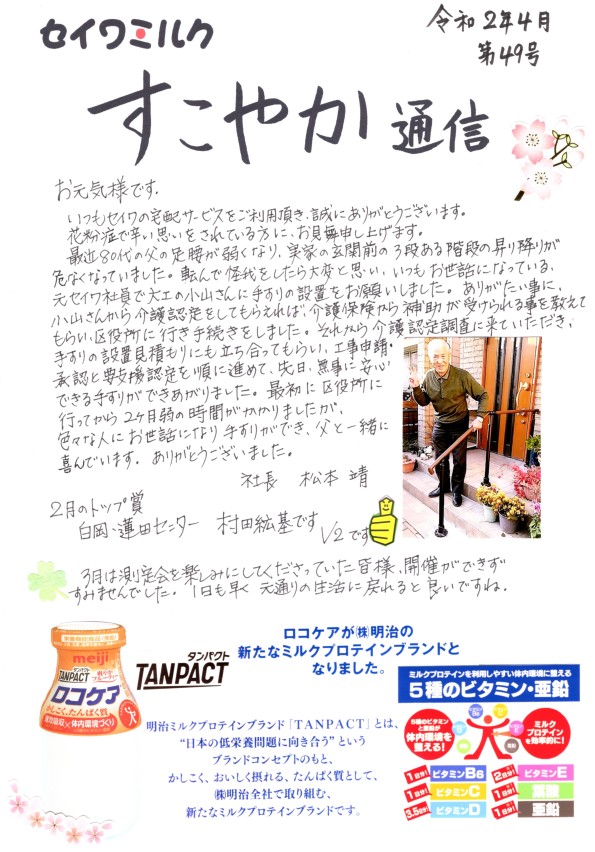 セイワミルク
令和2年4月
第49号
すこやか通信
お元気様です。
いつもセイワの宅配サービスをご利用頂き、誠にありがとうございます。
花粉症で辛い思いをされている方に、お見舞申し上げます。
最近80代の父の足腰が弱くなり、実家の玄関前の3段ある階段の昇り降りが
危なくなっていました。転んで怪我をしたら大変と思い、いつもお世話になっている、
元セイワ社員で大工の小山さんに手すりの設置をお願いしました。ありがたい事に、
小山さんから介護認定をしてもらえれば、介護保険から補助が受けられる事を教えて
もらい、区役所に行き手続きをしました。それから介護認定調査に来ていただき、
手すりの設置見積もりにも立ち合ってもらい、工事申請・
承認と要支援認定を順に進めて、先日、無事に安心
できる手すりができあがりました。最初に区役所に
行ってから2ヶ月弱の時間がかかりましたが、
色々な人にお世話になり手すりができ、父と一緒に
喜んでいます。ありがとうございました。
社長 松本 靖
2月のトップ賞
白岡・蓮田センター 村田紘基です
V2です
3月は測定会を楽しみにしてくださっていた皆様、開催ができず
すみませんでした。1日も早く元通りの生活に戻れると良いですね。
ロコケアが(株)明治の
新たなミルクプロテインブランドと
なりました。
meiji
タンパクト
TANPACT
ロコケア
かしこく、たんぱく質
体内環境づくり
タンパクト
TANPACT
明治ミルクプロテインブランド「TANPACT」とは、
"日本の低栄養問題に向き合う"という
ブランドコンセプトのもと、
かしこく、おいしく摂れる、たんぱく質として、
㈱明治全社で取り組む、
新たなミルクプロテインブランドです。
ミルクプロテインを利用しやすい体内環境に整える
5種のビタミン・亜鉛
5種のビタミン
と亜鉛が
体内環境を
整える!
ミルク
プロテインを
効率的に!
1日分! ビタミンB6
2日分! ビタミンE
1日分! ビタミンC
1日分! 葉酸
3.5日分! ビタミンD
1日分! 亜鉛